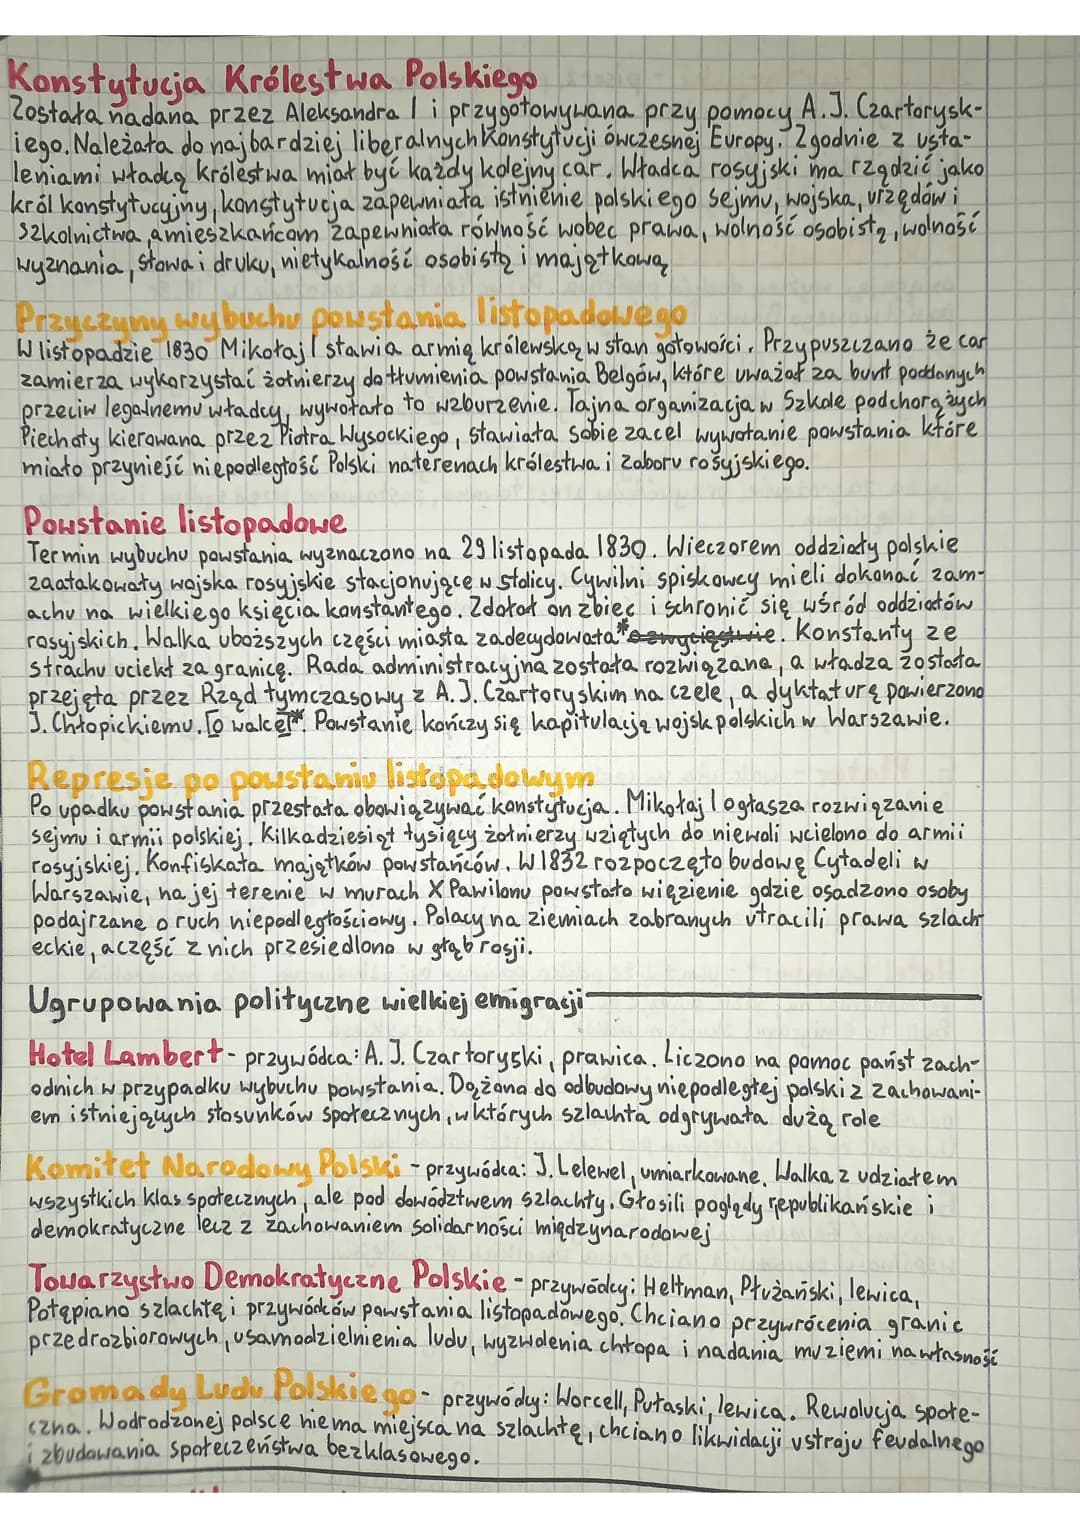 Konstytucja Królestwa Polskiego
Została nadana przez Aleksandra I i przygotowywana przy pomocy A.J. Czartorysk-
iego. Należała do najbardziej liberalnych konstytucji ówczesnej Europy. Zgodnie z usta-
leniami władcą królestwa miał być każdy kolejny car. Władca rosyjski ma rządzić jako
król konstytucyjny, konstytucja zapewniała istnienie polskiego sejmu, wojska, urzędów i
szkolnictwa, a mieszkańcom zapewniała równość wobec prawa, wolność osobistą, wolność
wyznania, słowa i druku, nietykalność osobistą i majątkową
Przyczyny wybuchu powstania listopadowego
W listopadzie 1830 Mikołaj I stawia armię królewską w stan gotowości. Przypuszczano że car
zamierza wykorzystać żołnierzy do tłumienia powstania Belgów, które uważał za bunt poddanych
przeciw legalnemu władcy, wywołało to wzburzenie. Tajna organizacja w Szkole podchorążych
Piechoty kierowana przez Piotra Wysockiego, stawiała sobie za cel wywołanie powstania które
miało przynieść niepodległość Polski na terenach królestwa i zaboru rosyjskiego.
Powstanie listopadowe
Termin wybuchu powstania wyznaczono na 29 listopada 1830. Wieczorem oddziały polskie
zaatakowały wojska rosyjskie stacjonujące w stolicy. Cywilni spiskowcy mieli dokonać zam-
achu na wielkiego księcia konstantego. Zdołał on zbiec i schronić się wśród oddziałów
rosyjskich. Walka uboższych części miasta zadecydowała* o zwycięstwie. Konstanty ze
strachu uciekł za granicę. Rada administracyjna została rozwiązana, a władza została
przejęta przez Rząd tymczasowy z A.J. Czartoryskim na czele, a dyktaturę powierzono
J. Chłopickiemu. [o walce]*. Powstanie kończy się kapitulacją wojsk polskich w Warszawie.
Represje po powstaniu listopadowym
Po upadku powstania przestała obowiązywać konstytucja. Mikołaj I ogłasza rozwiązanie
sejmu i armii polskiej. Kilkadziesiąt tysięcy żołnierzy wziętych do niewoli wcielono do armii
rosyjskiej. Konfiskata majątków powstańców. W 1832 rozpoczęto budowę Cytadeli w
Warszawie, na jej terenie w murach X Pawilonu powstało więzienie gdzie osadzono osoby
podajrzane o ruch niepodległościowy. Polacy na ziemiach zabranych utracili prawa szlach
eckie, a część z nich przesiedlono w głąb rosji.
Ugrupowania polityczne wielkiej emigracji
Hotel Lambert - przywódca: A.J. Czartoryski, prawica. Liczono na pomoc państ zach-
odnich w przypadku wybuchu powstania. Dążono do odbudowy niepodległej polski z zachowani-
em istniejących stosunków społecznych, w których szlachta odgrywała dużą role
Komitet Narodowy Polski - przywódca: J. Lelewel, umiarkowane. Walka z udziałem
wszystkich klas społecznych, ale pod dowództwem szlachty. Głosili poglądy republikańskie i
demokratyczne lecz z zachowaniem solidarności międzynarodowej
Towarzystwo Demokratyczne Polskie - przywódcy: Heltman, Płużański, lewica,
Potępiano szlachtę i przywódców powstania listopadowego. Chciano przywrócenia granic
przedrozbiorowych, usamodzielnienia ludu, wyzwolenia chłopa i nadania mu ziemi na własność
Gromady Ludu Polskiego - przywódcy: Worcell, Pułaski, lewica. Rewolucja społe-
czna. W odrodzonej polsce nie ma miejsca na szlachtę, chciano likwidacji ustroju feudalnego
i zbudowania społeczeństwa bezklasowego.